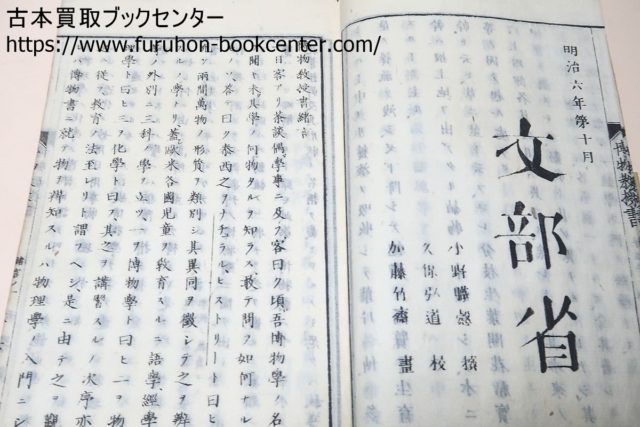 古本買取ブックセンター
https://www.furuhon-bookcenter.com/
明治六年第十月
文部省
小野職愨 撰
久保弘道 校
加藤竹齋 畫
博物教授書
博物教授書緒言
日客アリ茶談偶學事ニ及フ客曰ク頃吾博物學ノ名
聞ト未其學ノ何物タルヲ知ラス敢テ問フ如何ナル
ノソ答テ曰ク泰西之ヲナチラル、ヒストリート曰ヒ
ツ兩間萬物ノ形質ヲ類別シ其異同ヲ徴シテ之ヲ辨
スルノ學ナリ蓋歐米各國兒童ヲ教育スルニ語學、經學
等ノ外別ニ三科ノ學ヲ立ツ、一ヲ博物學ト曰ヒ二ヲ物
理學ト曰ヒ三ヲ化學ト曰フ其之ヲ講習スルノ次序亦
ヘ從フ教育ノ法至レリト謂フヘシ、是ニ由テ之ヲ觀
ハ博物書ニ就テ物ヲ辨知スルハ物理學ノ入門ニシ